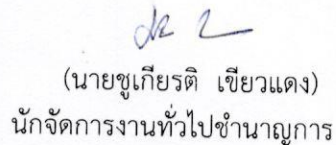 (นายชูเกียรติ เขียวแดง)
นักจัดการงานทั่วไปชำนาญการ